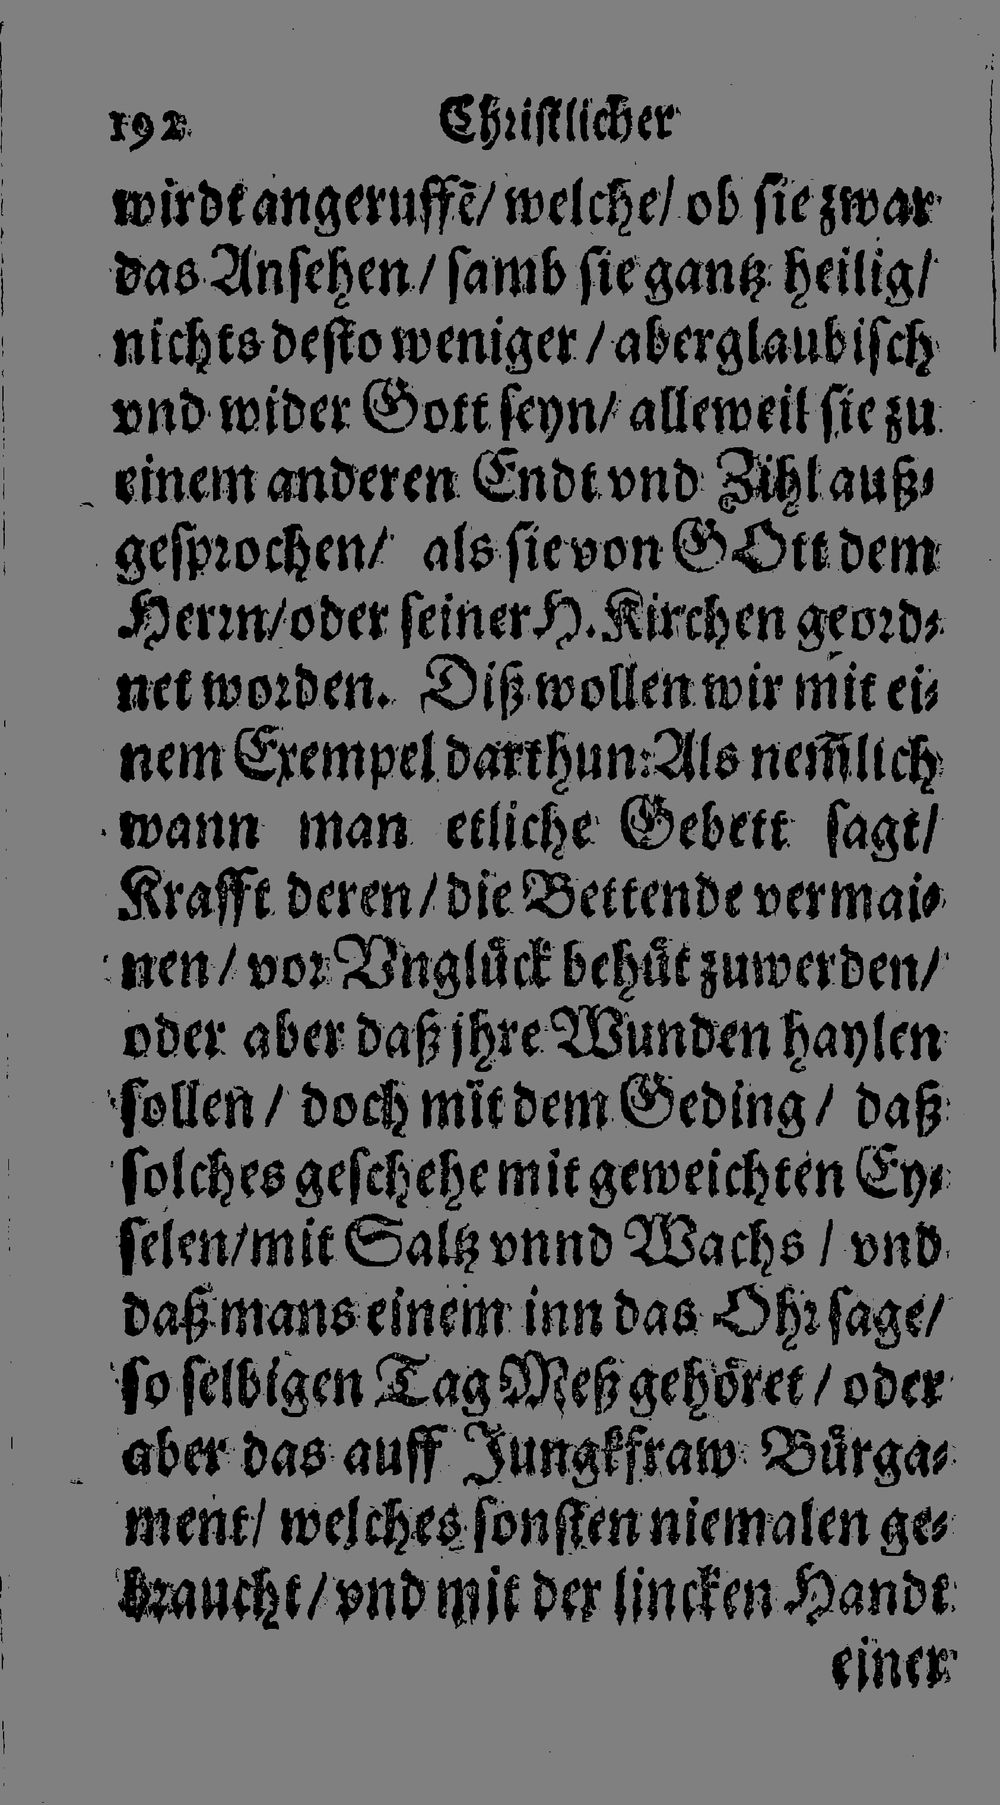 192 Christlicher
wirdt angeruffē/ welche/ ob sie zwar
das Ansehen/ samb sie gantz heilig/
nichts desto weniger / aberglaubisch
vnd wider Gott seyn/ alleweil sie zu
einem anderen Endt vnd Zihl auß⸗
gesprochen/ als sie von GOtt dem
Herrn/oder seiner H. Kirchen geord⸗
net worden. Diß wollen wir mit ei⸗
nem Exempel darthun: Als nem̃lich
wann man etliche Gebett sagt/
Krafft deren/ die Bettende vermai⸗
nen/ vor Vnglück behüt zuwerden/
oder aber daß jhre Wunden haylen
sollen/ doch mit dem Geding/ daß
solches geschehe mit geweichten Ey⸗
selen/mit Saltz vnnd Wachs / vnd
daß mans einem inn das Ohr sage/
so selbigen Tag Meß gehöret / oder
aber das auff Jungkfraw Bürga⸗
ment/ welches sonsten niemalen ge⸗
braucht/ vnd mit der lincken Handt
einer